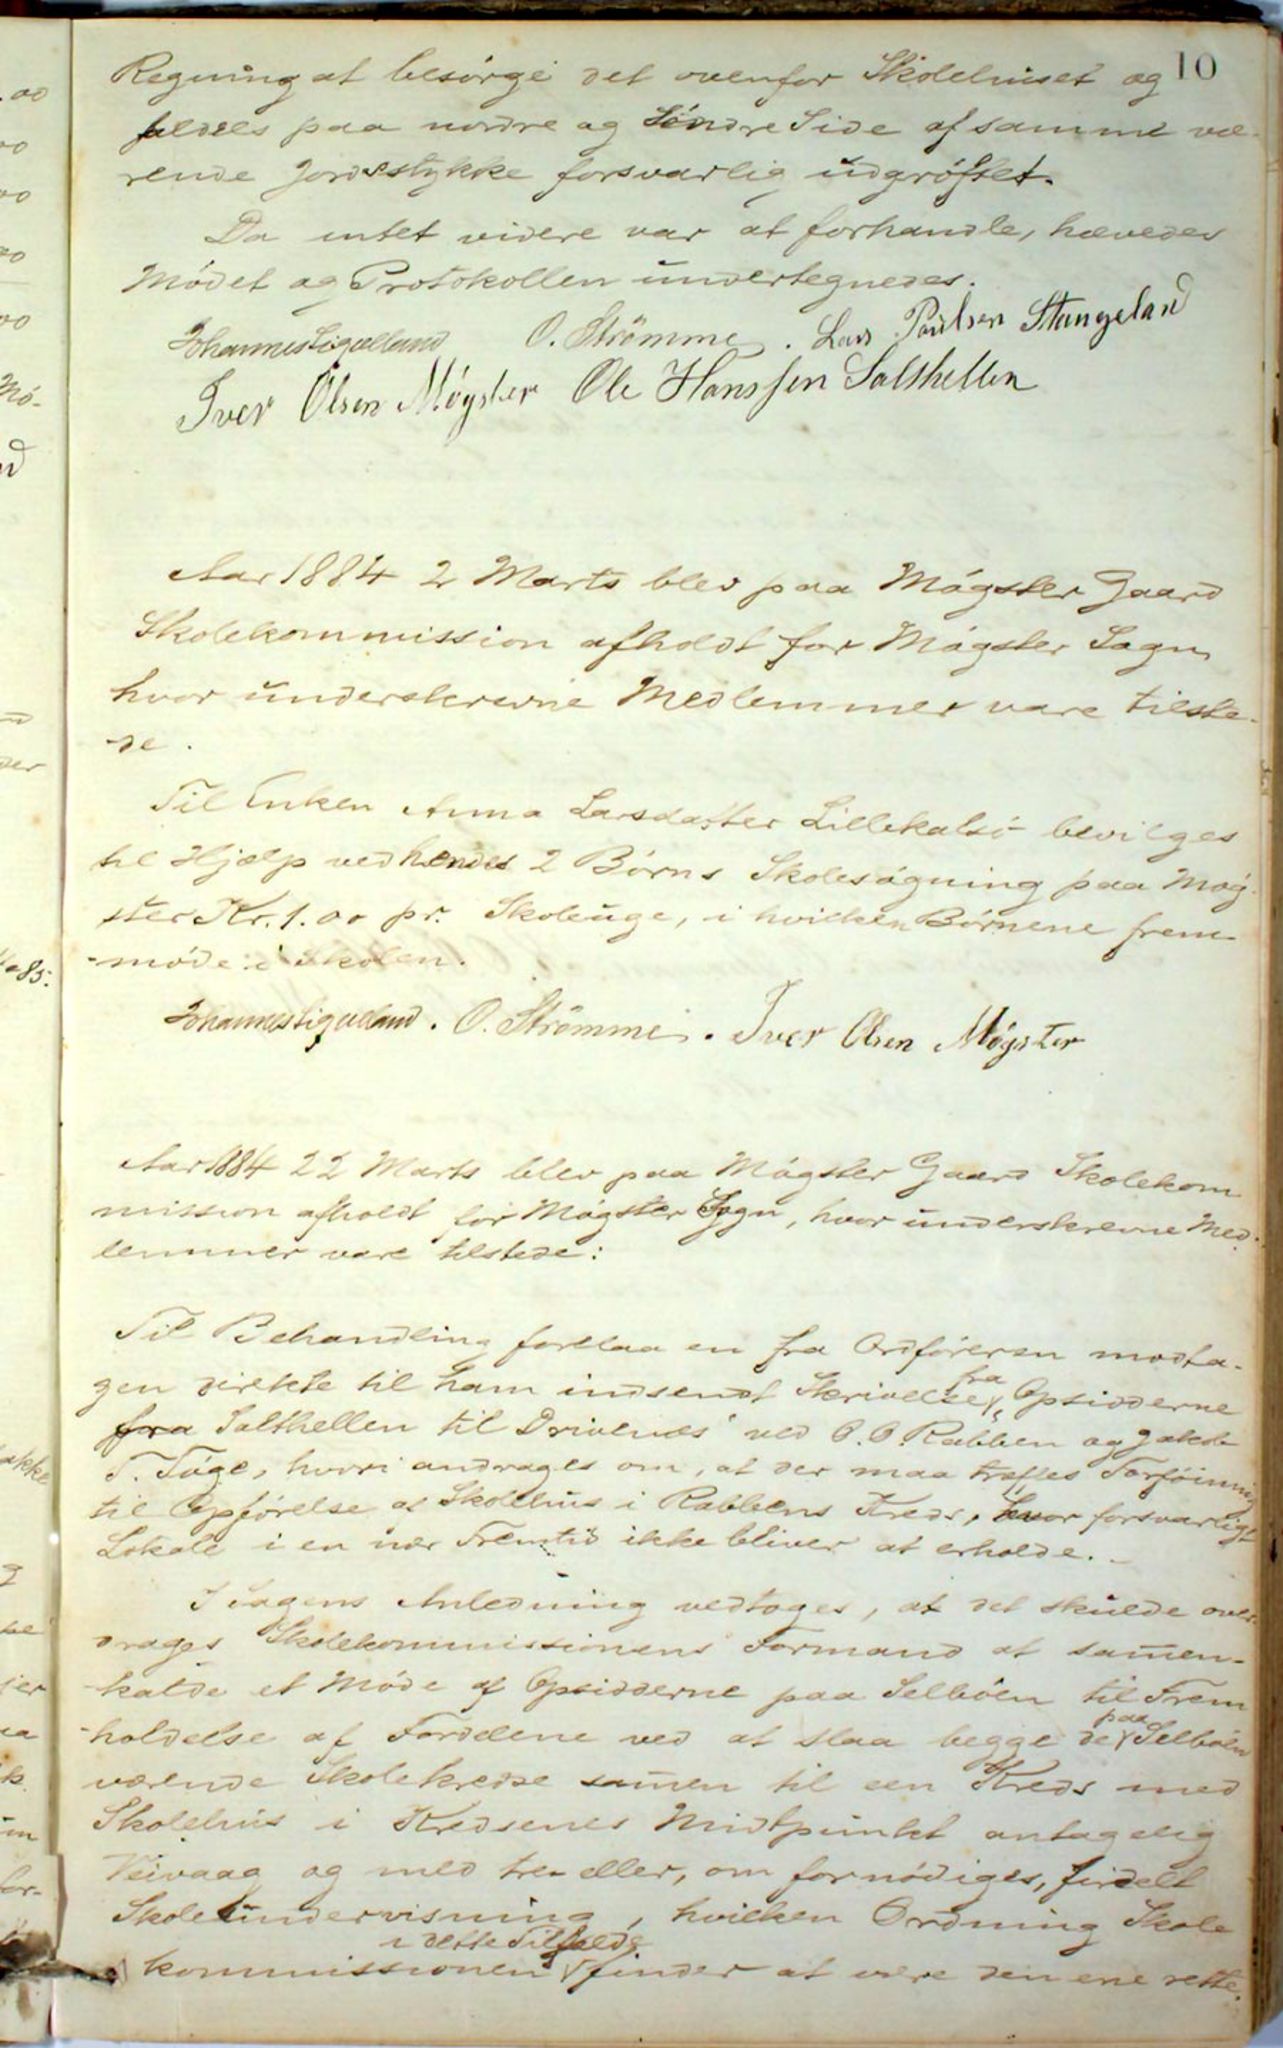 10
Regning at besörge det ovenfor Skolehuset og
fælles paa nordre og Söndre Side af samme væ-
rende Jordstykke forsvarlig udgröftet.
Da intet videre var at forhandle, hævedes
Mödet og Protokollen undertegnedes.
Johannes Ligvelland O. Strömme. Lars Paulsen Stangeland
Iver Olsen Møgster Ole Hanssen Salthellen
Aar 1884 2 Marts blev paa Mögster Gaard
Skolekommission afholdt for Mögster Sogn,
hvor underskrevne Medlemmer vare tilste-
-de.
Til Enken Anna Larsdatter Lillekalsö bevilges
til Hjælp ved hendes 2 Börns Skolesögning paa Mög-
ster Kr. 1.00 pr. Skoleuge, i hvilken Börnene frem-
-möde i Skolen.
Johannes Ligvelland. O. Strömme. Iver Olsen Møgster
Aar 1884 22 Marts blev paa Mögster Gaard Skolekom
mission afholdt for Mögster Sogn, hvor underskrevne Med-
lemmer vare tilstede:
Til Behandling forelaa en fra Ordföreren modta-
gen direkte til ham indsendt Skrivelse fra Opsidderne
fra Salthellen til Drivenes ved O. O. Rabben og Jakob
T. Töge, hvori andrages om, at der maa træffes Forföining
til Opförelse af Skolehus i Rabbens Kreds, hvor forsvarligt
Lokale i en nær Fremtid ikke bliver at erholde.
I Sagens Anledning vedtoges, at det skulde over-
drages Skolekommissionens Formand at samen-
-kalde et Möde af Opsidderne paa Selböen til Frem
-holdelse af Fordelene ved at slaa begge de paa Selböen
værende Skolekredse samen til een Kreds med
Skolehus i Kredsenes Midtpunkt antagelig
Veivaag og med tre- eller, om fornödiges, firdelt
Skoleundervisning, hvilken Ordning Skole
kommissionen i dette Tilfælde finder at være den ene rette.